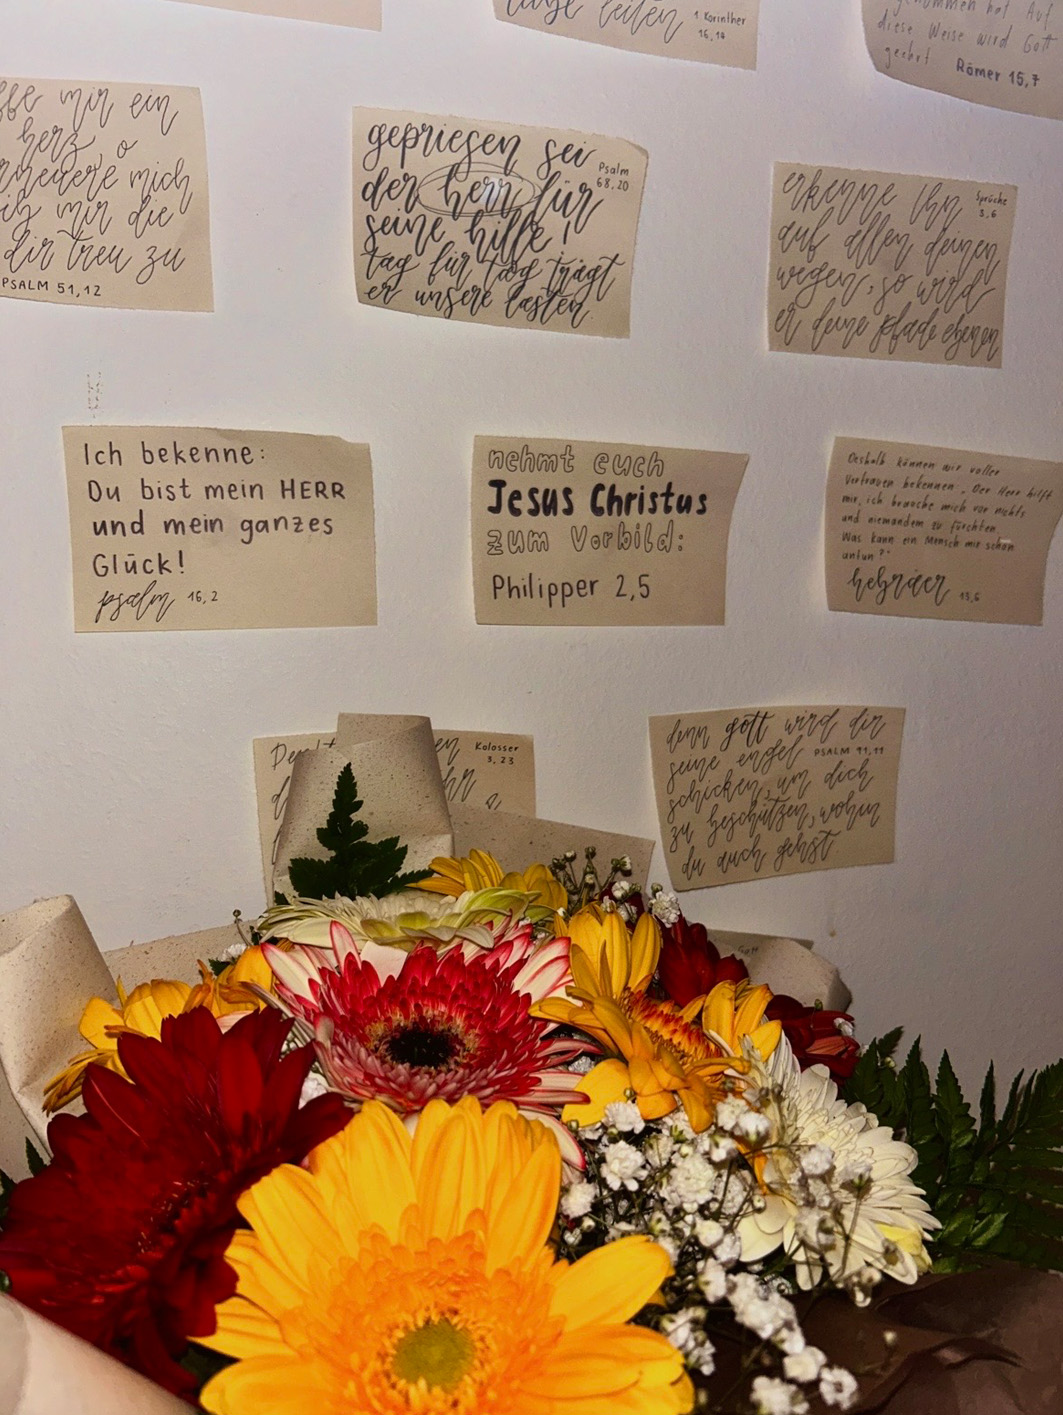 leiten
1. Korinther
16,14
genommen hat. Auf
diese Weise wird Gott
geehrt Römer 15,7
mir ein
herz, o
mich
mir die
dir treu zu
PSALM 51,12
gepriesen sei
der herr für
seine hilfe!
tag für tag trägt
er unsere lasten.
Psalm
68,20
erkenne Ihn
auf allen deinen
wegen, so wird
er deine pfade ebenen
Sprüche
3,6
Ich bekenne:
Du bist mein HERR
und mein ganzes
Glück!
psalm 16,2
nehmt euch
Jesus Christus
zum Vorbild:
Philipper 2,5
Deshalb können wir voller
Vertrauen bekennen „Der Herr hilft
mir, ich brauche mich vor nichts
und niemandem zu fürchten.
Was kann ein Mensch mir schon
antun?"
hebräer 13,6
Kolosser
3,23
denn gott wird dir
seine engel PSALM 91,11
schicken, um dich
zu beschützen, wohin
du auch gehst